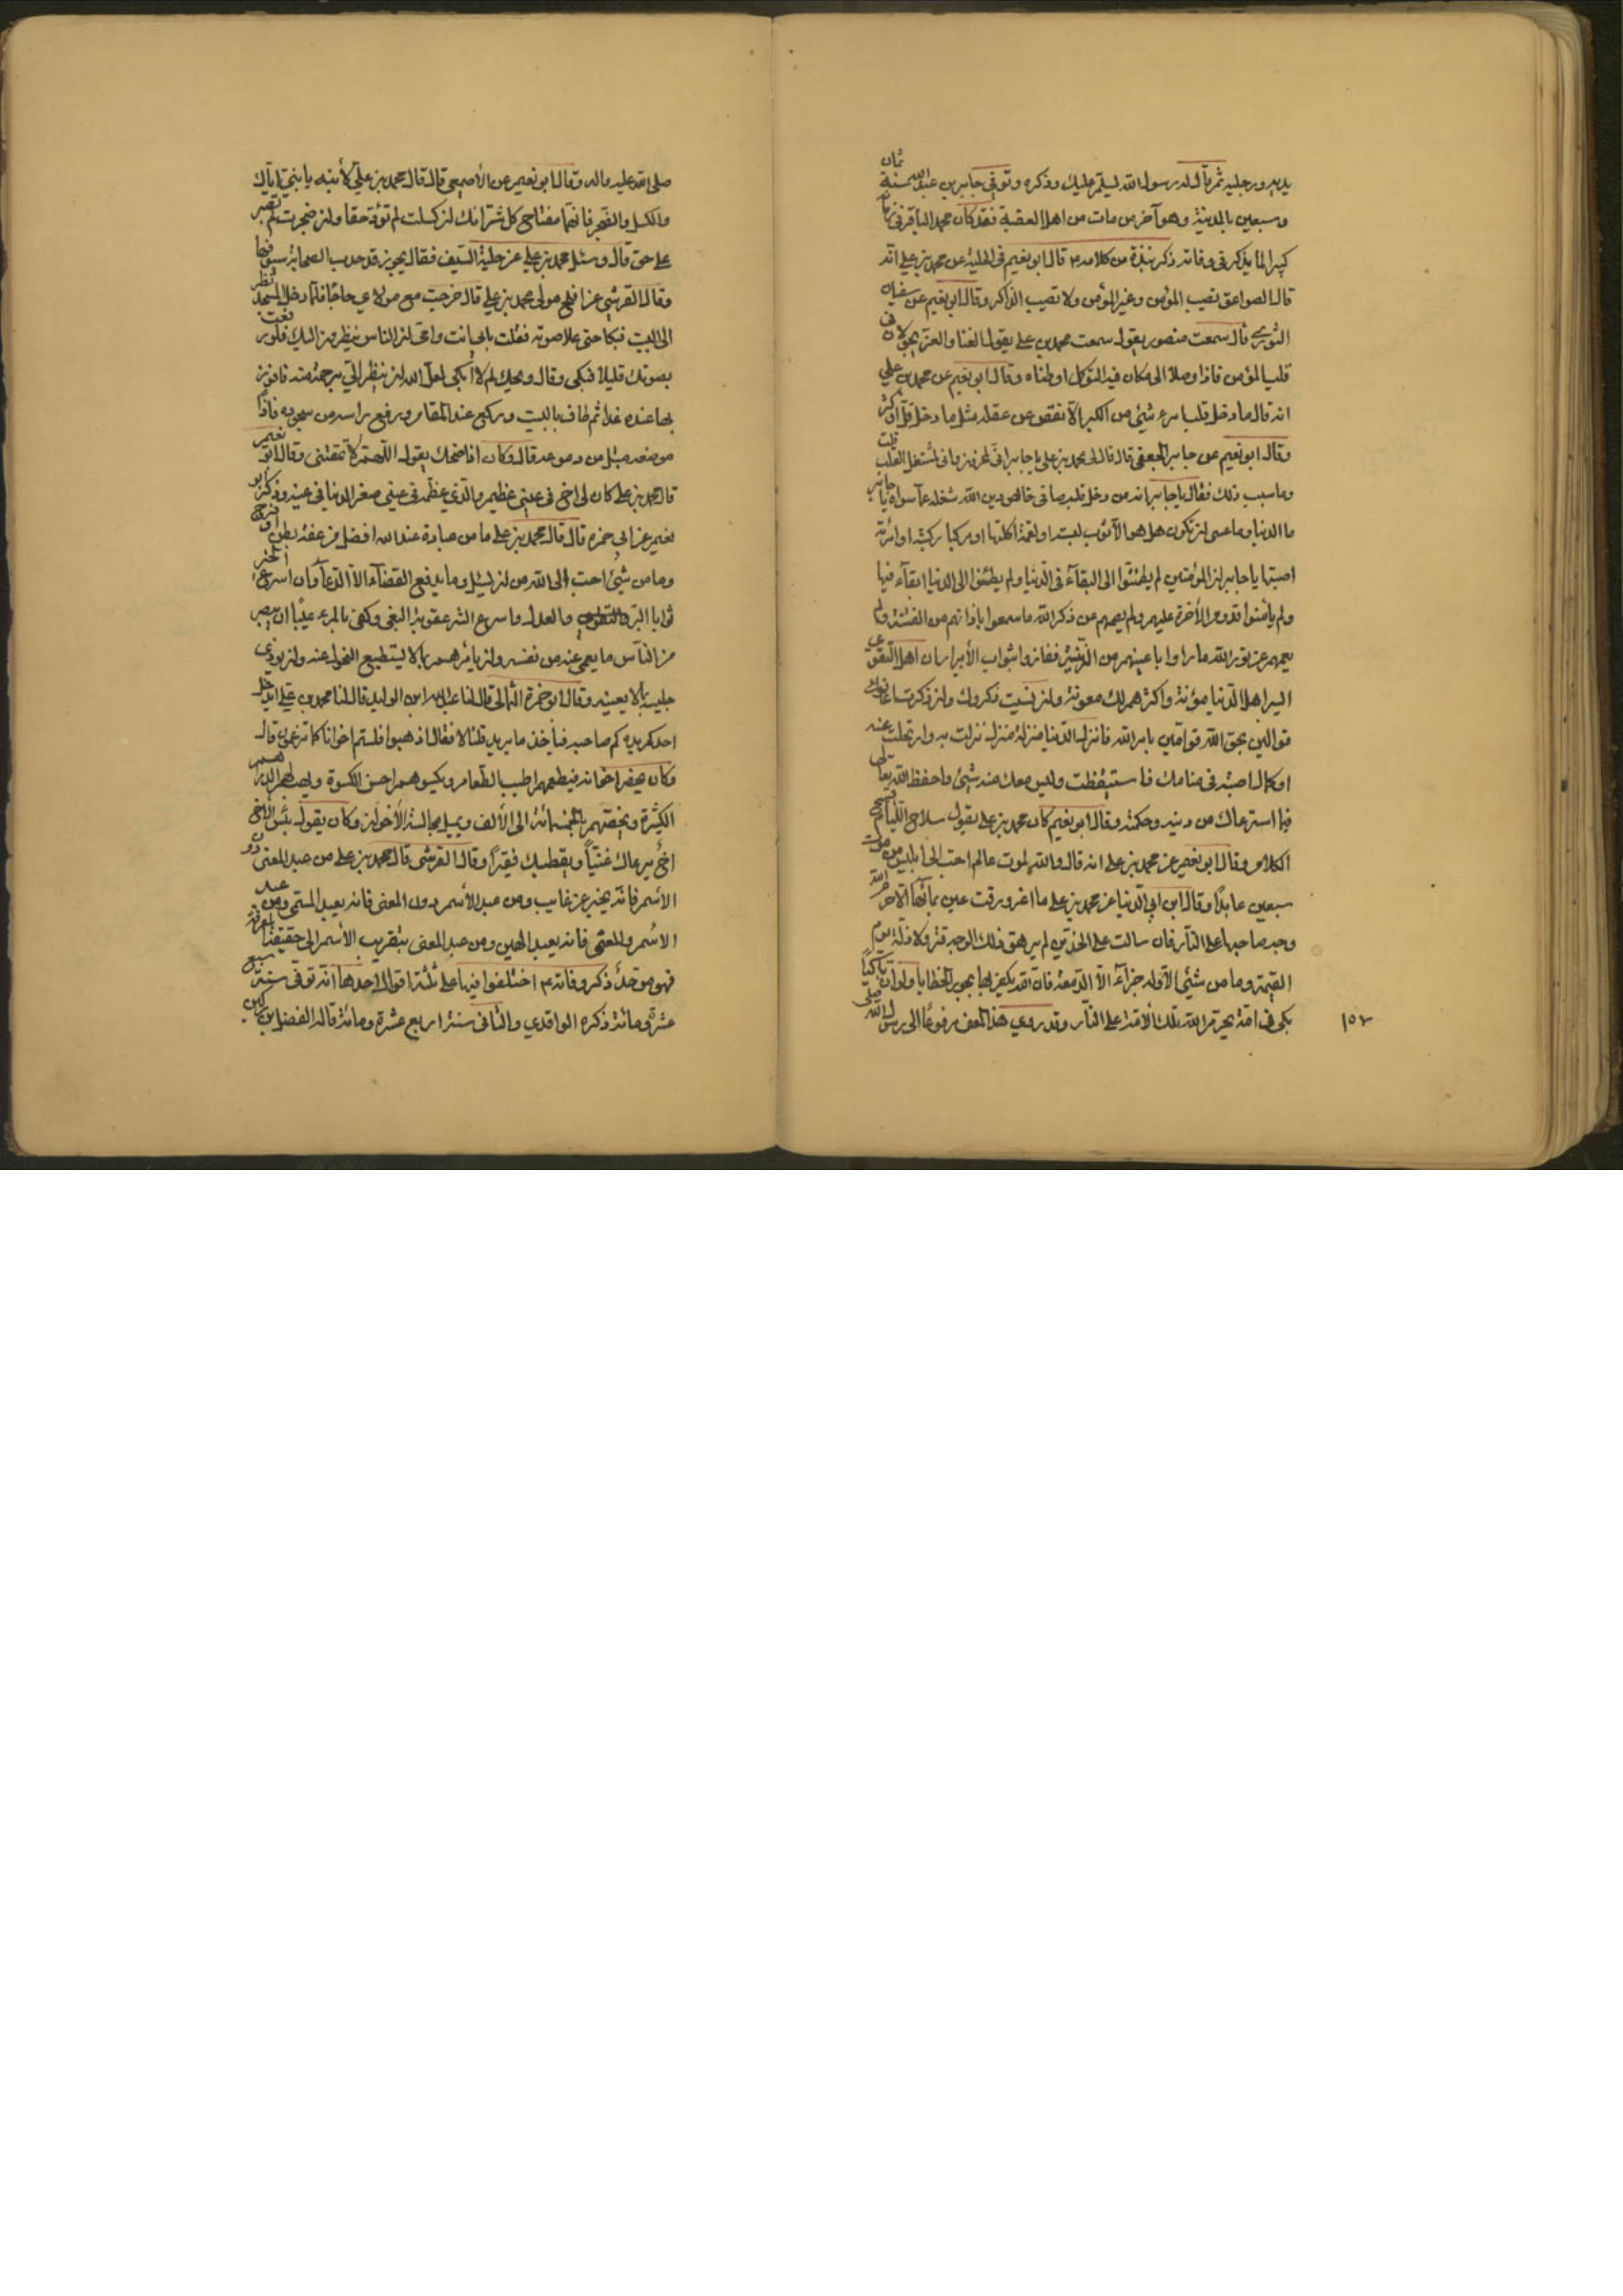 يديه ورجليه ثم قال له رسول الله يسلم عليك وذكره وتوفي جابر بن عبد الله سنة ثمان
وسبعين بالمدينة وهو آخر من مات من اهل العقبة فقد كان محمد الباقر في
كبيرا لما يذكر في وفاته ذكر نبذة من كلامه م قال ابو نعيم في الحلية عن محمد بن علي انه
قال الصواعق تصيب المؤمن وغير المؤمن ولا تصيب الذاكر وقال ابو نعيم عن سفيان
الثوري قال سمعت منصور يقول سمعت محمد بن علي يقول الغنا والعز يجولان في
قلب المؤمن فاذا وصلا الى مكان فيه التوكل اوطناه وقال ابو نعيم عن محمد بن علي
انه قال ما دخل قلب امرء شيئ من الكبر الا نقص من عقله مثل ما دخل قل او كثر
وقال ابو نعيم عن جابر الجعفي قال قال لي محمد بن علي يا جابر اني لمحزون واني لمشتغل القلب قلت
وما سبب ذلك فقال يا جابر انه من دخل قلبه صافي خالص دين الله شغله عما سواه يا جابر
ما الدنيا وما عسى ان تكون هل هو الا ثوب لبسته او لقمة اكلتها او مركبا ركبته او امرأة
اصبتها يا جابر ان المؤمنين لم يطمئنوا الى البقاء في الدنيا ولم يطمئنوا الى الدنيا لبقاء فيها
ولم يأمنوا قدوم الآخرة عليهم ولم يصمهم عن ذكر الله ما سمعوا باذانهم من الفتنة ولم
يعمهم عن نور الله ما راوا باعينهم من الزينة ففازوا بثواب الأبرار ان اهل التقوى
ايسر اهل الدنيا مؤنة واكثرهم لك معونة ان نسيت ذكروك وان ذكرت اعانوك
قوالين بحق الله قوامين بامر الله فانزل الدنيا منزلة منزل نزلت به وارتحلت عنه
او كمال اصبته في منامك فاستيقظت وليس معك منه شيئ واحفظ الله تعالى
فيما استرعاك من دينه وحكمته وقال ابو نعيم كان محمد بن علي يقول سلاح اللئام قبيح
الكلام وقال ابو نعيم عن محمد بن علي انه قال والله لموت عالم احب الى ابليس من موت
سبعين عابدا وقال ابن ابي الدنيا عن محمد بن علي ما اغرورقت عين بمائها الا حرم الله
وجه صاحبها على النار فان سالت على الخدين لم يرهق ذلك الوجه قتر ولا ذلة يوم
القيمة وما من شيئ الا وله جزاء الا الدمعة فان الله يكفر بها بحور الخطايا ولو ان باكيا
بكى في امة لحرم الله تلك الأمة على النار وقد روي هذا المعنى مرفوعا الى رسول الله صلى
١٥٢
صلى الله عليه واله وقال ابو نعيم عن الأصمعي قال قال محمد بن علي لأبنه يا بني اياك
والكسل والضجر فانهما مفتاح كل شر انك ان كسلت لم تؤد حقا وان ضجرت لم تصبر
على حق قال وسئل محمد بن علي عن حلية السيف فقال يجوز قد حلت الصحابة سيوفها
وقال القرشي عن افلح مولى محمد بن علي قال خرجت مع مولاي حاجا فلما دخل المسجد نظر
الى البيت فبكا حتى علا صوته فقلت بابي انت وامي ان الناس ينظرون اليك فلو رفعت
بصوتك قليلا فبكى وقال ويحك لم لا ابكي لعل الله ان ينظر الي برحمة منه فافوز
بها عنده غدا ثم طاف بالبيت وركع عند المقام ورفع راسه من سجوده فاذا
موضعه مبتل من دموعه قال وكان اذا ضحك يقول اللهم لا تمقتني وقال ابو نعيم
قال محمد بن علي كان لي اخ في عيني عظيم والذي عظمه في عيني صغر الدنيا في عينه وذكر ابو
نعيم عن ابي حمزه قال قال محمد بن علي ما من عبادة عند الله افضل من عفة بطن او فرج
وما من شيئ احب الى الله من ان يسئل وما يدفع القضاء الا الدعا وان اسرع الخير
ثوابا البر والعدل واسرع الشر عقوبة البغي وكفى بالمرء عيبا ان يبصر
من الناس ما يعمي عنه من نفسه وان يأمرهم بما لا يستطيع التحول عنه وان يوذي
جليسه بما لا يعنيه وقال ابو حمزة الثمالي قال لنا عبد الله ابن الوليد قال لنا محمد بن علي ايدخل
احدكم يده كم صاحبه فيأخذ ما يريد قلنا لا فقال اذهبوا فلستم اخوانا كما تزعمون قال
وكان يحضر اخوانه فيطعمهم اطيب الطعام ويكسوهم احسن الكسوة ويصلهم الدراهم
الكثيرة ويخصهم بالخمسمائة الى الألف ويميل مجالسة الأخوان وكان يقول بئس الاخ
اخ يرعاك غنياً ويقطعك فقيراً وقال القرشي قال محمد بن علي من عبد المعنى دون
الأسم فانه يخبر عن غايب ومن عبد الأسم دون المعنى فانه يعبد المسمى ومن عبد
الأسم والمعنى فانه يعبد الهين ومن عبد المعنى بتقريب الأسم الى حقيقة المعرفة
فهو موحد ذكر وفاته م اختلفوا فيها على ثلثة اقوال احدها انه توفي سنة سبع
عشرة ومائة ذكره الواقدي والثاني سنة اربع عشرة ومائة قاله الفضل بن دكين